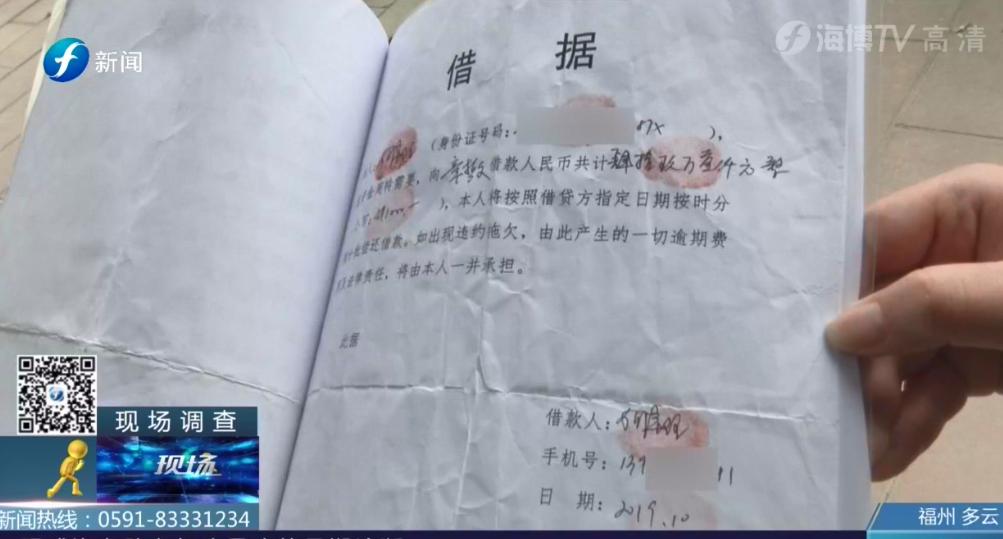 新闻
海博TV 高清
借 据
(身份证号码: 07X ),
向 借款人民币共计肆拾玖万壹仟元整
), 本人将按照借贷方指定日期按时分
偿还借款。如出现违约拖欠, 由此产生的一切逾期费
律责任, 将由本人一并承担。
此据
借款人:
手机号: 139 11
日 期: 2019.10
现场调查
现场
新闻热线: 0591-83331234
福州 多云